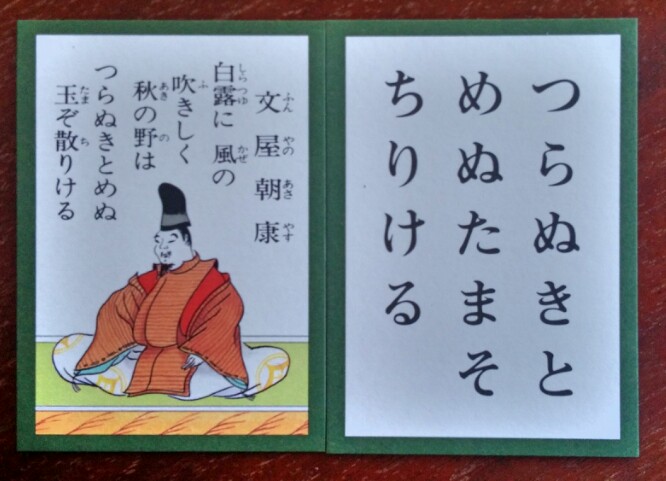 文屋朝康
ふん やの あさ やす
白露に 風の
しらつゆ かぜ
吹きしく
ふ
秋の野は
あき の
つらぬきとめぬ
玉ぞ散りける
たま ち
つらぬきと
めぬたまそ
ちりける